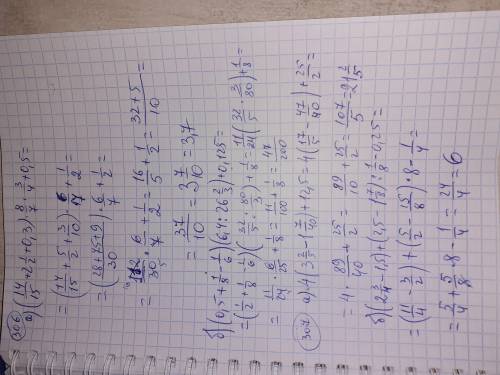 306
а) (14/15 + 2 1/2 + 0,3) · 8/7 · 3/4 + 0,5 =
= (14/15 + 5/2 + 3/10) · 6/7 + 1/2 =
= (28+75+9)/30 · 6/7 + 1/2 =
· 6/7 + 1/2 = 16/5 + 1/2 = 32+5/10 =
= 37/10 = 3 7/10 = 3,7
б) (0,5 + 1/8 - 1/6) (6,4 : 26 2/3) + 0,125 =
= (1/2 + 1/8 - 1/6) (32/5 : 80/3) + 1/8 = 11/24 (32/5 · 3/80) + 1/8 =
= 11/24 · 6/25 + 1/8 = 11/100 + 1/8 = 47/200
307 а) 4 (3 2/5 - 1 7/40) + 12,5 = 4 (17/5 - 47/40) + 25/2 =
= 4 · 89/40 + 25/2 = 89/10 + 25/2 = 107/5 = 21 2/5
б) (2 3/4 - 1,5) + (2,5 - 1 7/8) : 1/8 - 0,25 =
= (11/4 - 3/2) + (5/2 - 15/8) · 8 - 1/4 =
= 5/4 + 5/8 · 8 - 1/4 = 24/4 = 6